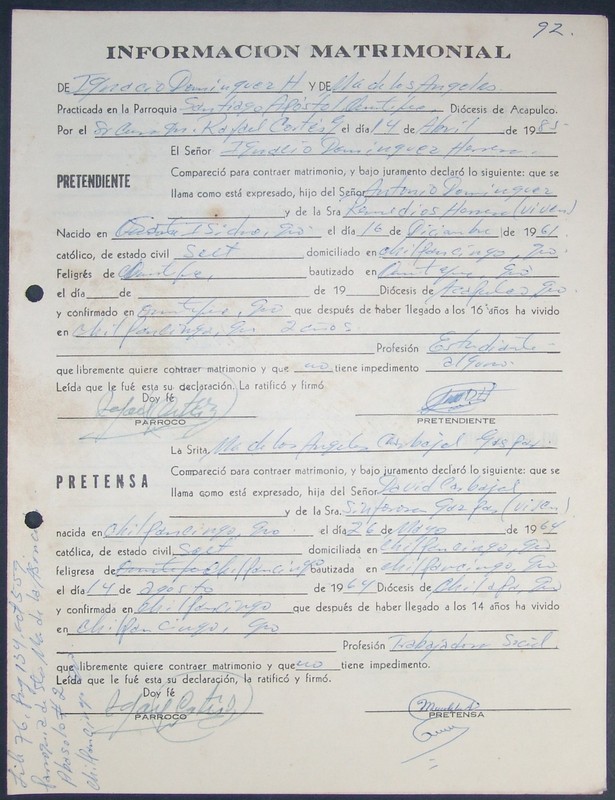 92.
INFORMACION MATRIMONIAL
DE Ignacio Dominguez H Y DE Ma de los Angeles
Practicada en la Parroquia Santiago Apóstol Diócesis de Acapulco.
Por el Sr Cura Rafael Cortés G el día 14 de Abril de 1985
El Señor Ignacio Dominguez Herrera
PRETENDIENTE
Compareció para contraer matrimonio, y bajo juramento declaró lo siguiente: que se
llama como está expresado, hijo del Señor Antonio Dominguez
y de la Sra Remedios Herrera (viven)
Nacido en Isidro, Gro. el día 16 de Diciembre de 1961
católico, de estado civil Solt domiciliado en Chilpancingo, Gro.
Feligrés de bautizado en Gro
el día de de 19 Diócesis de Acapulco Gro
y confirmado en Gro que después de haber llegado a los 16 años ha vivido
en Chilpancingo, Gro 2 años.
Profesión Estudiante
que libremente quiere contraer matrimonio y que no tiene impedimento alguno.
Leída que le fué esta su declaración. La ratificó y firmó
Doy fé
Rafael Cortés
PARROCO
PRETENDIENTE
La Srita. Ma de los Angeles Carbajal Gaspar.
PRETENSA
Compareció para contraer matrimonio, y bajo juramento declaró lo siguiente: que se
llama como está expresado, hija del Señor David Carbajal
y de la Sra. Sinforosa Gaspar (viven)
nacida en Chilpancingo, Gro el día 26 de Mayo de 1964
católica, de estado civil Solt domiciliada en Chilpancingo, Gro
feligresa de Chilpancingo bautizada en Chilpancingo, Gro
el día 14 de agosto de 1964 Diócesis de Chilapa, Gro
y confirmada en Chilpancingo que después de haber llegado a los 14 años ha vivido
en Chilpancingo, Gro
Profesión Trabajadora Social
que libremente quiere contraer matrimonio y que no tiene impedimento.
Leída que le fué esta su declaración, la ratificó y firmó.
Doy fé
Rafael Cortés
PARROCO
PRETENSA
Lib 76, Pag 134, act 557
Parroquia de Sta Ma de la
Chilpancingo Gro.